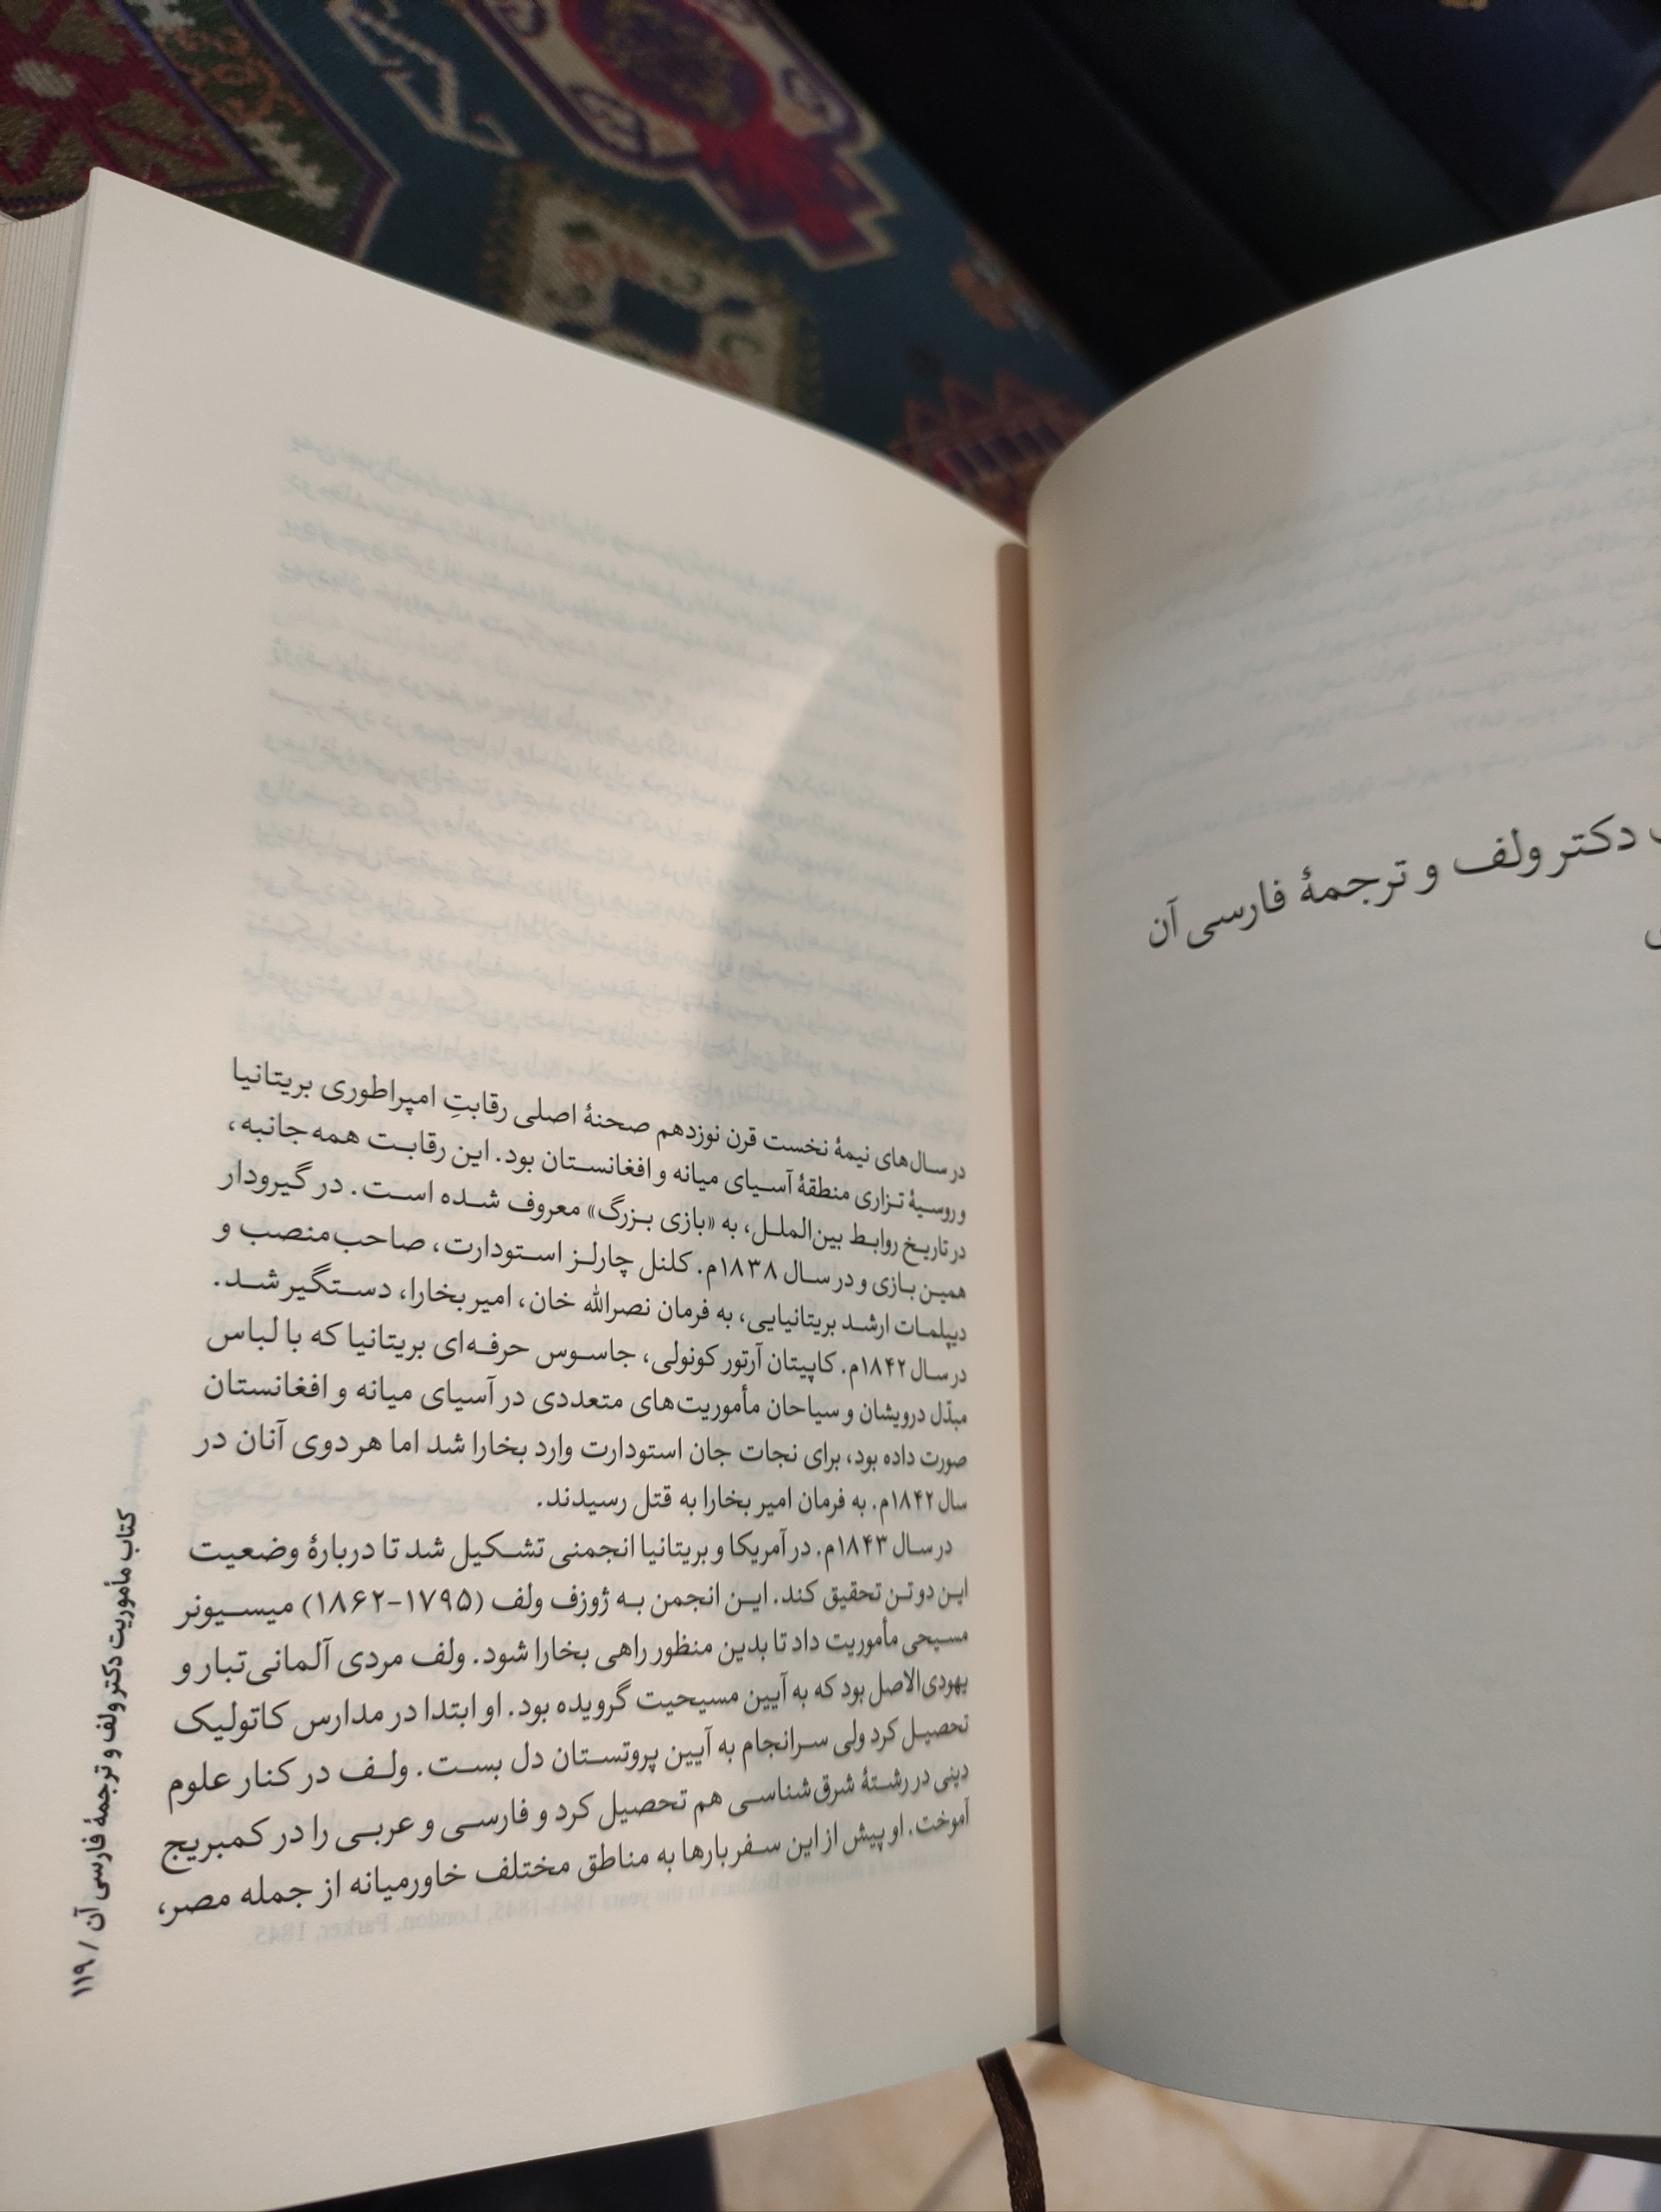 دکتر ولف و ترجمهٔ فارسی آن
در سال‌های نیمهٔ نخست قرن نوزدهم صحنهٔ اصلی رقابتِ امپراطوری بریتانیا
و روسیهٔ تزاری منطقهٔ آسیای میانه و افغانستان بود. این رقابت همه جانبه،
در تاریخ روابط بین‌الملل، به «بازی بزرگ» معروف شده است. در گیرودار
همین بازی و در سال ۱۸۳۸م. کلنل چارلز استودارت، صاحب‌منصب و
دیپلمات ارشد بریتانیایی، به فرمان نصرالله خان، امیر بخارا، دستگیر شد.
در سال ۱۸۴۲م. کاپیتان آرتور کونولی، جاسوس حرفه‌ای بریتانیا که با لباس
مبدّل درویشان و سیاحان مأموریت‌های متعددی در آسیای میانه و افغانستان
صورت داده بود، برای نجات جان استودارت وارد بخارا شد اما هر دوی آنان در
سال ۱۸۴۲م. به فرمان امیر بخارا به قتل رسیدند.
در سال ۱۸۴۳م. در آمریکا و بریتانیا انجمنی تشکیل شد تا دربارهٔ وضعیت
این دو تن تحقیق کند. این انجمن به ژوزف ولف (۱۷۹۵-۱۸۶۲) میسیونر
مسیحی مأموریت داد تا بدین منظور راهی بخارا شود. ولف مردی آلمانی‌تبار و
یهودی‌الاصل بود که به آیین مسیحیت گرویده بود. او ابتدا در مدارس کاتولیک
تحصیل کرد ولی سرانجام به آیین پروتستان دل بست. ولف در کنار علوم
دینی در رشتهٔ شرق‌شناسی هم تحصیل کرد و فارسی و عربی را در کمبریج
آموخت. او پیش از این سفر بارها به مناطق مختلف خاورمیانه از جمله مصر،
کتاب مأموریت دکتر ولف و ترجمهٔ فارسی آن / ۱۱۹